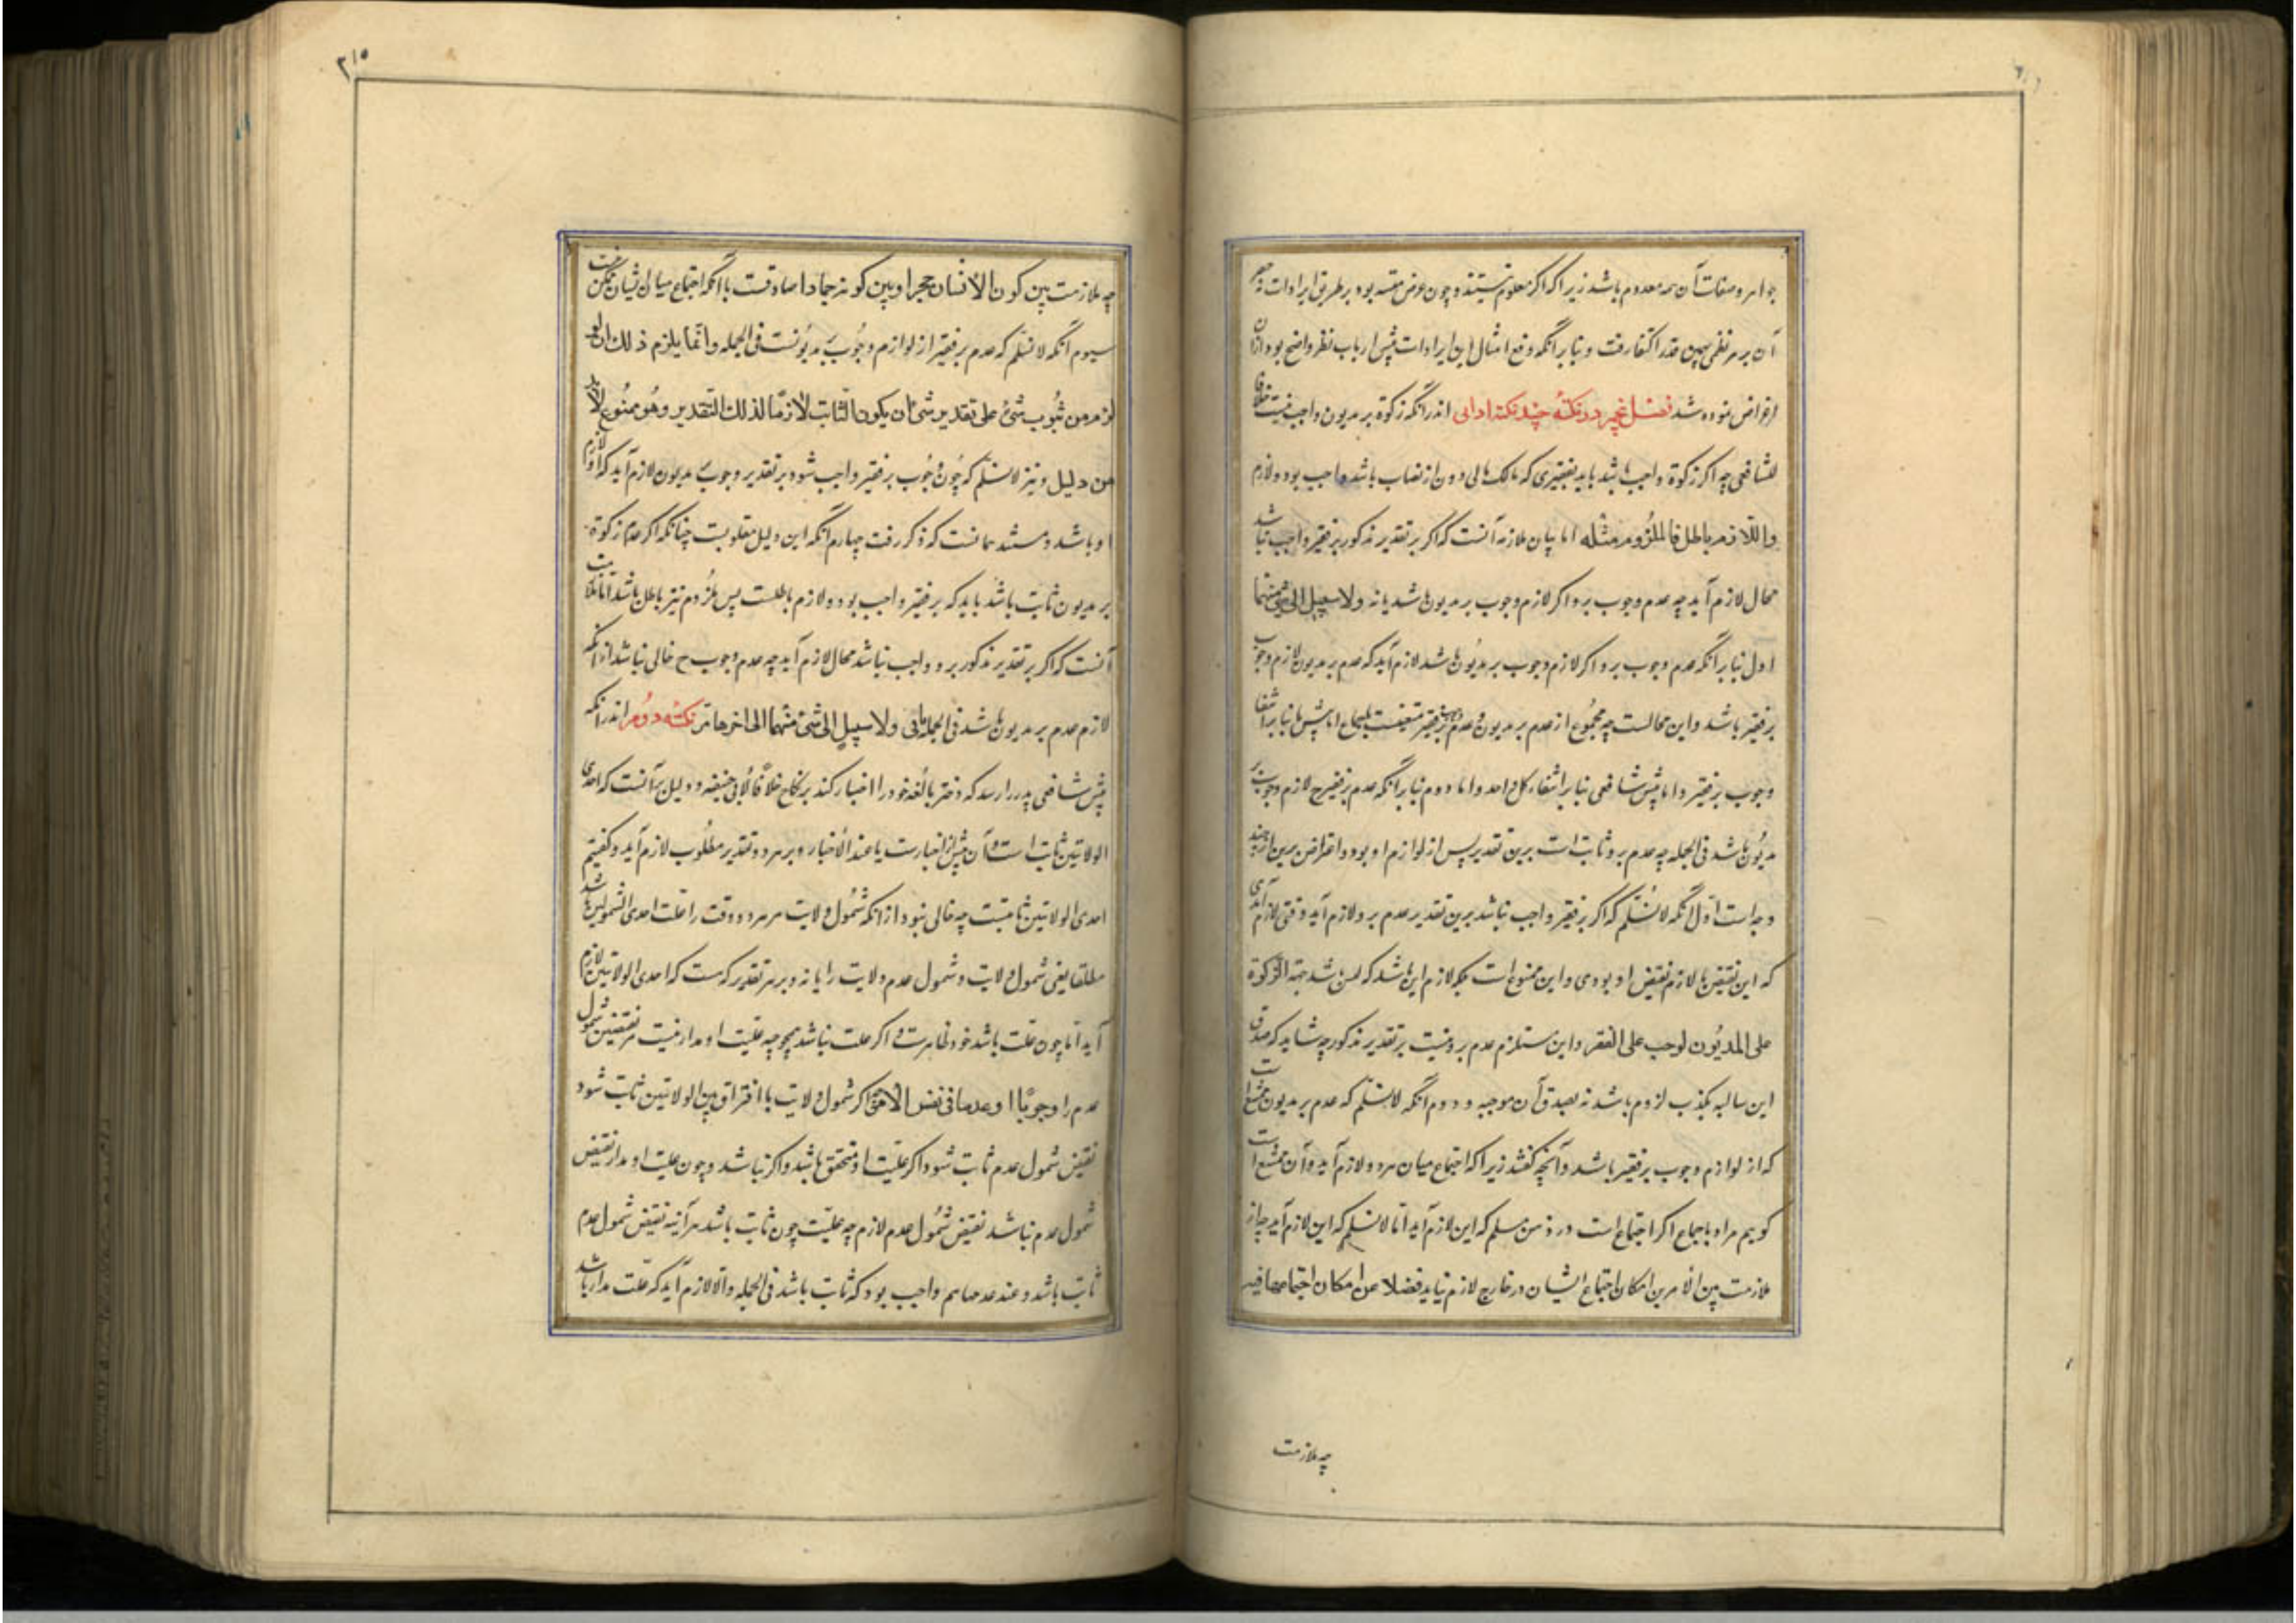 جواهر و صفات آن همه معدوم باشد زیرا که اگر معلوم نیستند و چون غرض بود بر طریق ایرادات نه حصر
آن بر هر نظمی همین قدر اکتفا رفت و بنا بر آنکه دفع امثال این ایرادات پیش ارباب نظر واضح بود از آن
اعراض نموده شد فصل پنجم در نکته چند نکته ادلی اندر آنکه زکوة بر مدیون واجب نیست خلافا
للشافعی چه اگر زکوة واجب باشد باید بفقیری که مالک مالی دون از نصاب باشد واجب بود و لازم
واللازم باطل فالملزوم مثله اما بیان ملازمه آنست که اگر بر تقدیر مذکور بر فقیر واجب نباشد
محال لازم آید چه عدم وجوب برو اگر لازم وجوب بر مدیون باشد یا نه ولا سبیل الی شئ منهما
اول بنا بر آنکه عدم وجوب برو اگر لازم وجوب بر مدیون باشد لازم آید که عدم بر مدیون لازم وجوب
بر فقیر باشد و این محالست چه مجموع از عدم بر مدیون و عدم بر فقیر منتفیست بالاجماع اما پیش ما بنا بر انتفا
وجوب بر فقیر و اما پیش شافعی بنا بر انتفاء کل واحد و اما دوم بنا بر آنکه عدم بر فقیر ح لازم وجوب بر
مدیون باشد فی الجمله چه عدم برو ثابت است برین تقدیر پس از لوازم او بود و اعتراض برین از چند
وجه است اول آنکه لا نسلم که اگر بر فقیر واجب نباشد برین تقدیر عدم برو لازم آید وقتی لازم آمدی
که این نقیض یا لازم نقیض او بودی و این ممنوع است بلکه لازم این باشد که لیس شد الزکوة
علی المدیون لوجب علی الفقیر و این مستلزم عدم برو نیست بر تقدیر مذکور چه شاید که صدق
این سالبه بکذب لزوم باشد نه بصدق آن موجبه و دوم آنکه لا نسلم که عدم بر مدیون ممتنع است
که از لوازم وجوب بر فقیر باشد و آنچه گفتند زیرا که اجتماع میان هر دو لازم آید و آن ممتنع است
گوییم مراد باجماع اگر اجتماع است در ذهن مسلم که این لازم آید اما لا نسلم که این لازم آید چه از
ملازمت بین الامرین امکان اجتماع ایشان در خارج لازم نیاید فضلا عن امکان اجتماعها فیه
چه ملازمت
۳۱۵
چه ملازمت بین کون الانسان حجرا و بین کونه جمادا صادقست با آنکه اجتماع میان ایشان ممکن نیست
سیوم آنکه لا نسلم که عدم بر فقیر از لوازم وجوب بر مدیونست فی الجمله و انما یلزم ذلک ان لو
لزم من ثبوت شئ علی تقدیر شئ ان یکون الثابت لازما لذلک التقدیر وهو ممنوع لابد
من دلیل و نیز لا نسلم که چون وجوب بر فقیر واجب شود بر تقدیر وجوب بر مدیون لازم آید که از لوازم
او باشد و مستند همانست که ذکر رفت چهارم آنکه این دلیل مقلوبست چنانکه اگر عدم زکوة
بر مدیون ثابت باشد باید که بر فقیر واجب بود و لازم باطلست پس ملزوم نیز باطل باشد اما ملازمت
آنست که اگر بر تقدیر مذکور برو واجب نباشد محال لازم آید چه عدم وجوب ح خالی نباشد از آنکه
لازم عدم بر مدیون باشد فی الجمله یا نی ولا سبیل الی شئ منهما الی اخرها مر نکته دوم اندر آنکه
پیش شافعی پدر را رسد که دختر بالغه خود را اجبار کند بر نکاح خلافا لابی حنیفه و دلیل بر آنست که احدی
الولایتین ثابت است و آن پیش از اختیارست یا عند الاختیار و بر هر دو تقدیر مطلوب لازم آید و گفتیم
احدی الولایتین ثابتست چه خالی نبود از آنکه شمول ولایت مر هر دو وقت را علت احدی الشمولین باشد
مطلقا یعنی شمول ولایت و شمول عدم ولایت را یا نه و بر هر تقدیر که هست که احدی الولایتین لازم
آید اما چون علت باشد خود ظاهرست و اگر علت نباشد چه علیت او مدار نیست مر نقیضین شمول
عدم را وجوبا او عدما فی نفس الامر اگر شمول ولایت یا افتراق بین الولایتین ثابت شود
نقیض شمول عدم ثابت شود اگر علیت او متحقق باشد و اگر نباشد و چون علیت او مدار نقیض
شمول عدم نباشد نقیض شمول عدم لازم چه علیت چون ثابت باشد هر آینه نقیض شمول عدم
ثابت باشد و عند عدمها هم واجب بود که ثابت باشد فی الجمله و الا لازم آید که علت مدار باشد